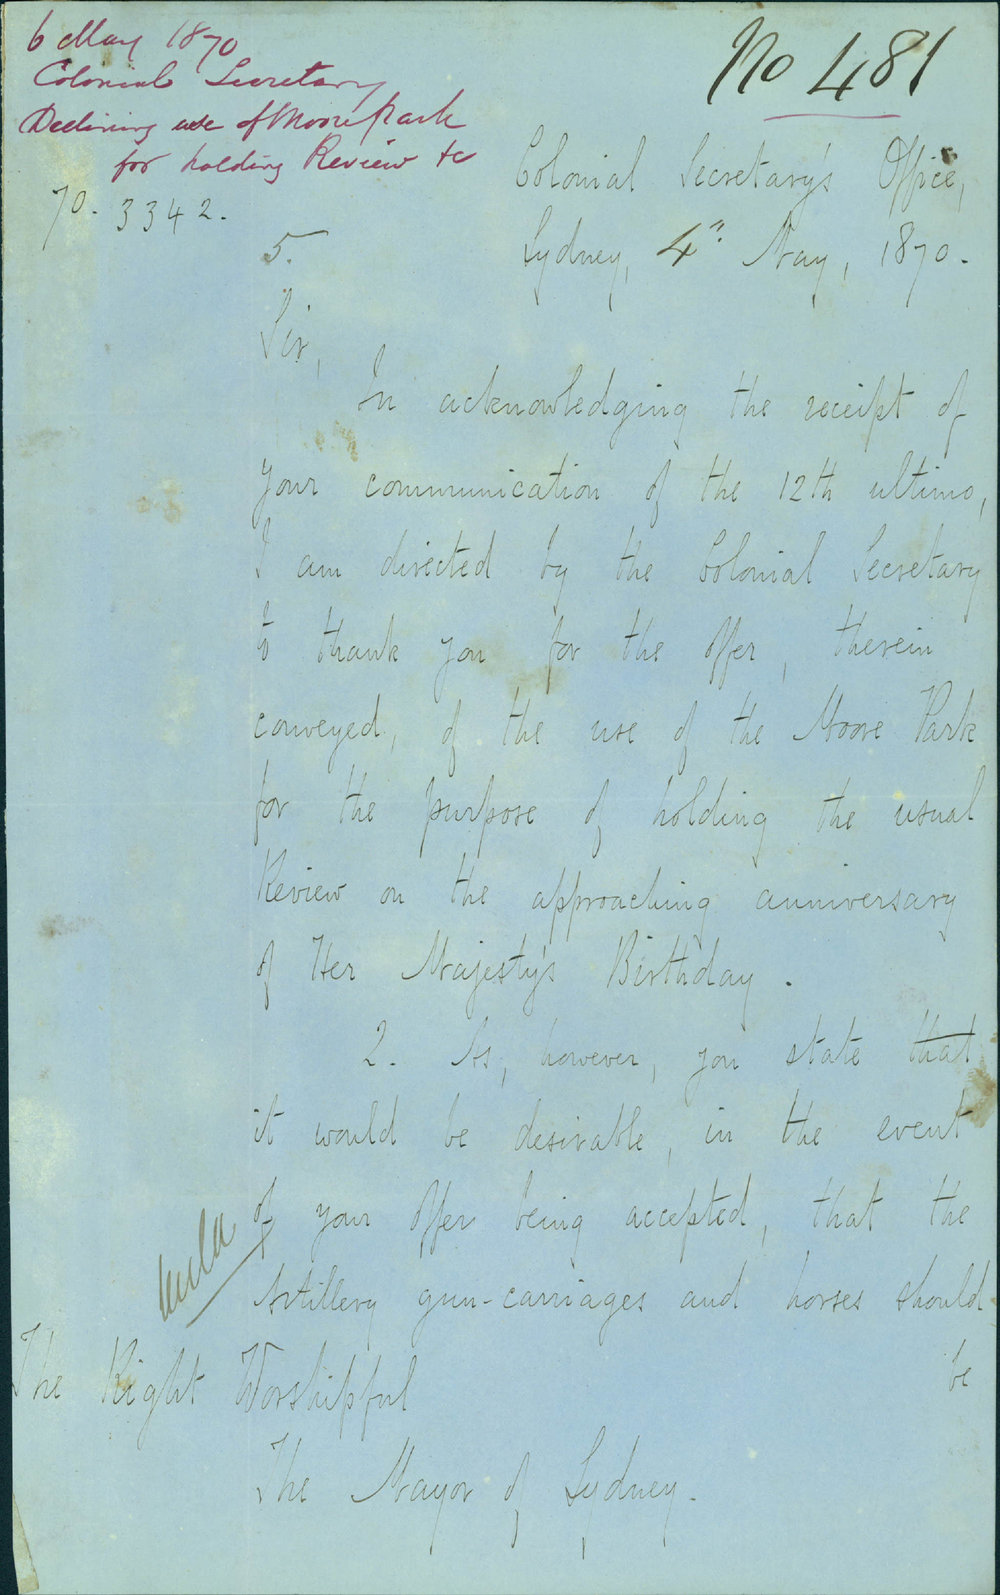 6 May 1870
Colonial Secretary
Declining use of Moore Park
for holding Review &c
No 481
70. 3342.
5.
Colonial Secretary's Office,
Sydney, 4". May, 1870.
Sir,
In acknowledging the receipt of
your communication of the 12th ultimo,
I am directed by the Colonial Secretary
to thank you for the offer, therein
conveyed, of the use of the Moore Park
for the purpose of holding the usual
Review on the approaching anniversary
of Her Majesty's Birthday.
2. As, however, you state that
it would be desirable, in the event
of your offer being accepted, that the
Artillery gun-carriages and horses should
be
The Right Worshipful
The Mayor of Sydney.